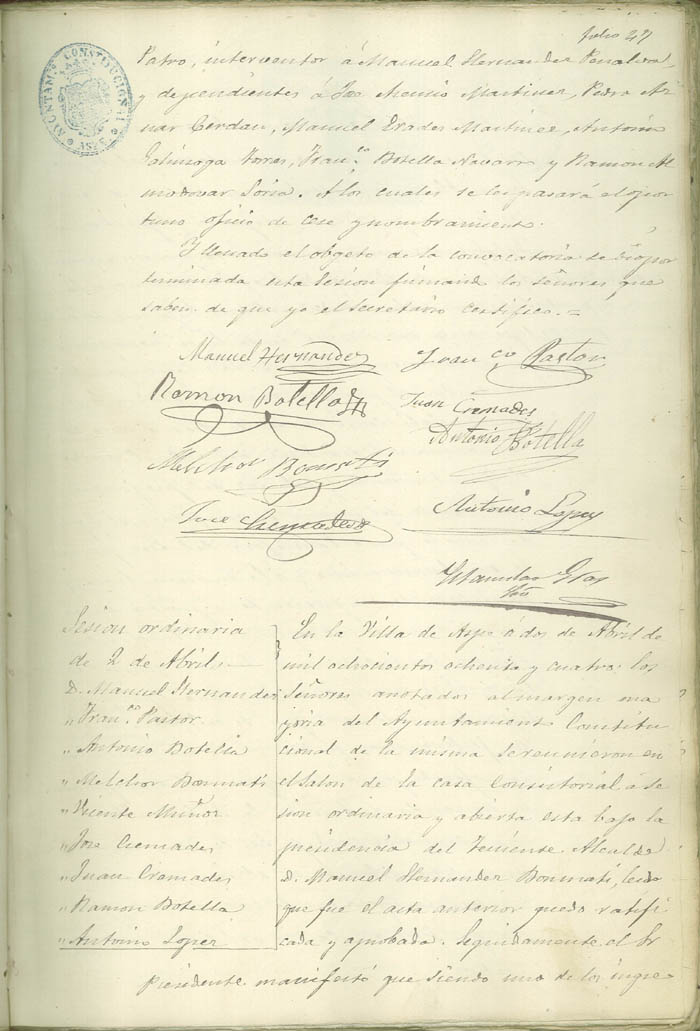 Folio 27
AYUNTAM.º CONSTITUCIONAL
ASPE
Patro, interventor á Manuel Hernandez Penalva,
y dependientes á José Asencio Martinez, Pedro Az
nar Cerdan, Manuel Erades Martinez, Antonio
Galinsoga Torres, Fran.co Botella Navarro y Ramon Al
modovar Soria. A los cuales se les pasará el opor
tuno oficio de cese y nombramiento.
Y llenado el objeto de la convocatoria se dió por
terminada esta sesion firmando los señores que
saben de que yo el Secretario certifico. =
Manuel Hernandez
Fran.co Pastor
Ramon Botella
Juan Cremades
Antonio Botella
Melchor Bonmati
Jose Cremades
Antonio Lopez
Estanislao Gras
Srio
Sesion ordinaria
de 2 de Abril.
D. Manuel Hernandez
" Fran.co Pastor
" Antonio Botella
" Melchor Bonmatí
" Vicente Muñoz
" Jose Cremades
" Juan Cremades
" Ramon Botella
" Antonio Lopez
En la Villa de Aspe á dos de Abril de
mil ochocientos ochenta y cuatro: los
Señores anotados al margen ma
yoria del Ayuntamiento Constitu
cional de la misma se reunieron en
el Salon de la casa Consistorial á se
sion ordinaria y abierta esta bajo la
presidencia del Teniente Alcalde
D. Manuel Hernandez Bonmatí, leida
que fue el acta anterior quedo ratifi
cada y aprobada. Seguidamente el Sr
Presidente manifestó que siendo uno de los ingre